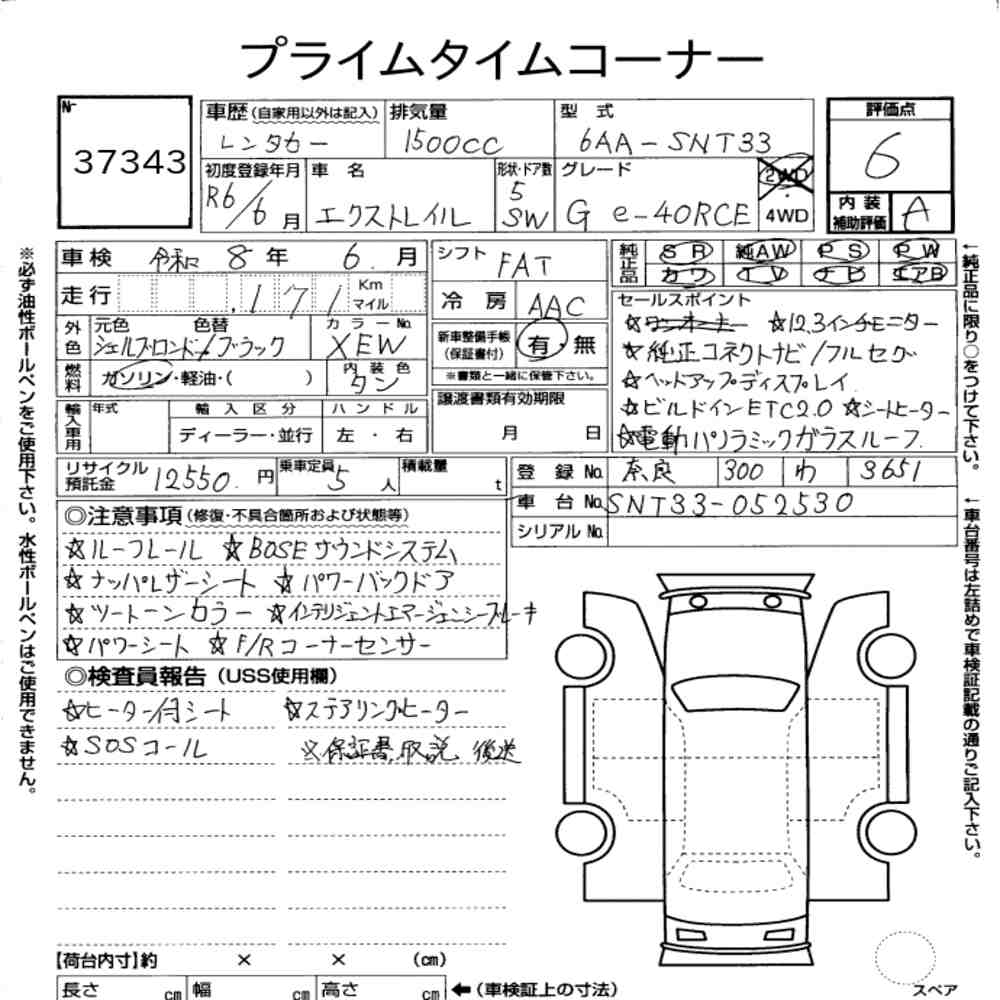 プライムタイムコーナー
№ 37343
車歴(自家用以外は記入) レンタカー
排気量 1500CC
型式 6AA-SNT33
評価点 6
初度登録年月 R6/6月
車名 エクストレイル
形状・ドア数 5 SW
グレード G e-4ORCE
2WD・4WD
内装補助評価 A
車検 令和 8年 6月
シフト FAT
純正品 SR 純AW PS PW
カワ TV ナビ エアB
走行 171 Km マイル
冷房 AAC
外色 元色 色替 シェルブロンド/ブラック
カラーNo. XEW
新車整備手帳(保証書付) 有・無
※書類と一緒に保管下さい。
燃料 ガソリン・軽油・( )
内装色 タン
譲渡書類有効期限 月 日
輸入車用 年式 輸入区分 ハンドル
ディーラー・並行 左・右
セールスポイント
☆ワンオーナー ☆12.3インチモニター
☆純正コネクトナビ/フルセグ
☆ヘッドアップディスプレイ
☆ビルドインETC2.0 ☆シートヒーター
☆電動パノラミックガラスルーフ
リサイクル預託金 12550円
乗車定員 5人
積載量 t
登録No. 奈良 300 わ 3651
車台No. SNT33-052530
シリアルNo.
◎注意事項(修復・不具合箇所および状態等)
☆ルーフレール ☆BOSEサウンドシステム
☆ナッパレザーシート ☆パワーバックドア
☆ツートーンカラー ☆インテリジェントエマージェンシーブレーキ
☆パワーシート ☆F/Rコーナーセンサー
◎検査員報告(USS使用欄)
☆ヒーター付シート ☆ステアリングヒーター
☆SOSコール ※保証書、取説、後送
【荷台内寸】約 × × (cm)
長さ cm 幅 cm 高さ cm ←(車検証上の寸法)
スペア
※必ず油性ボールペンをご使用下さい。水性ボールペンはご使用できません。
←純正品に限り○をつけて下さい。
←車台番号は左詰めで車検証記載の通りご記入下さい。